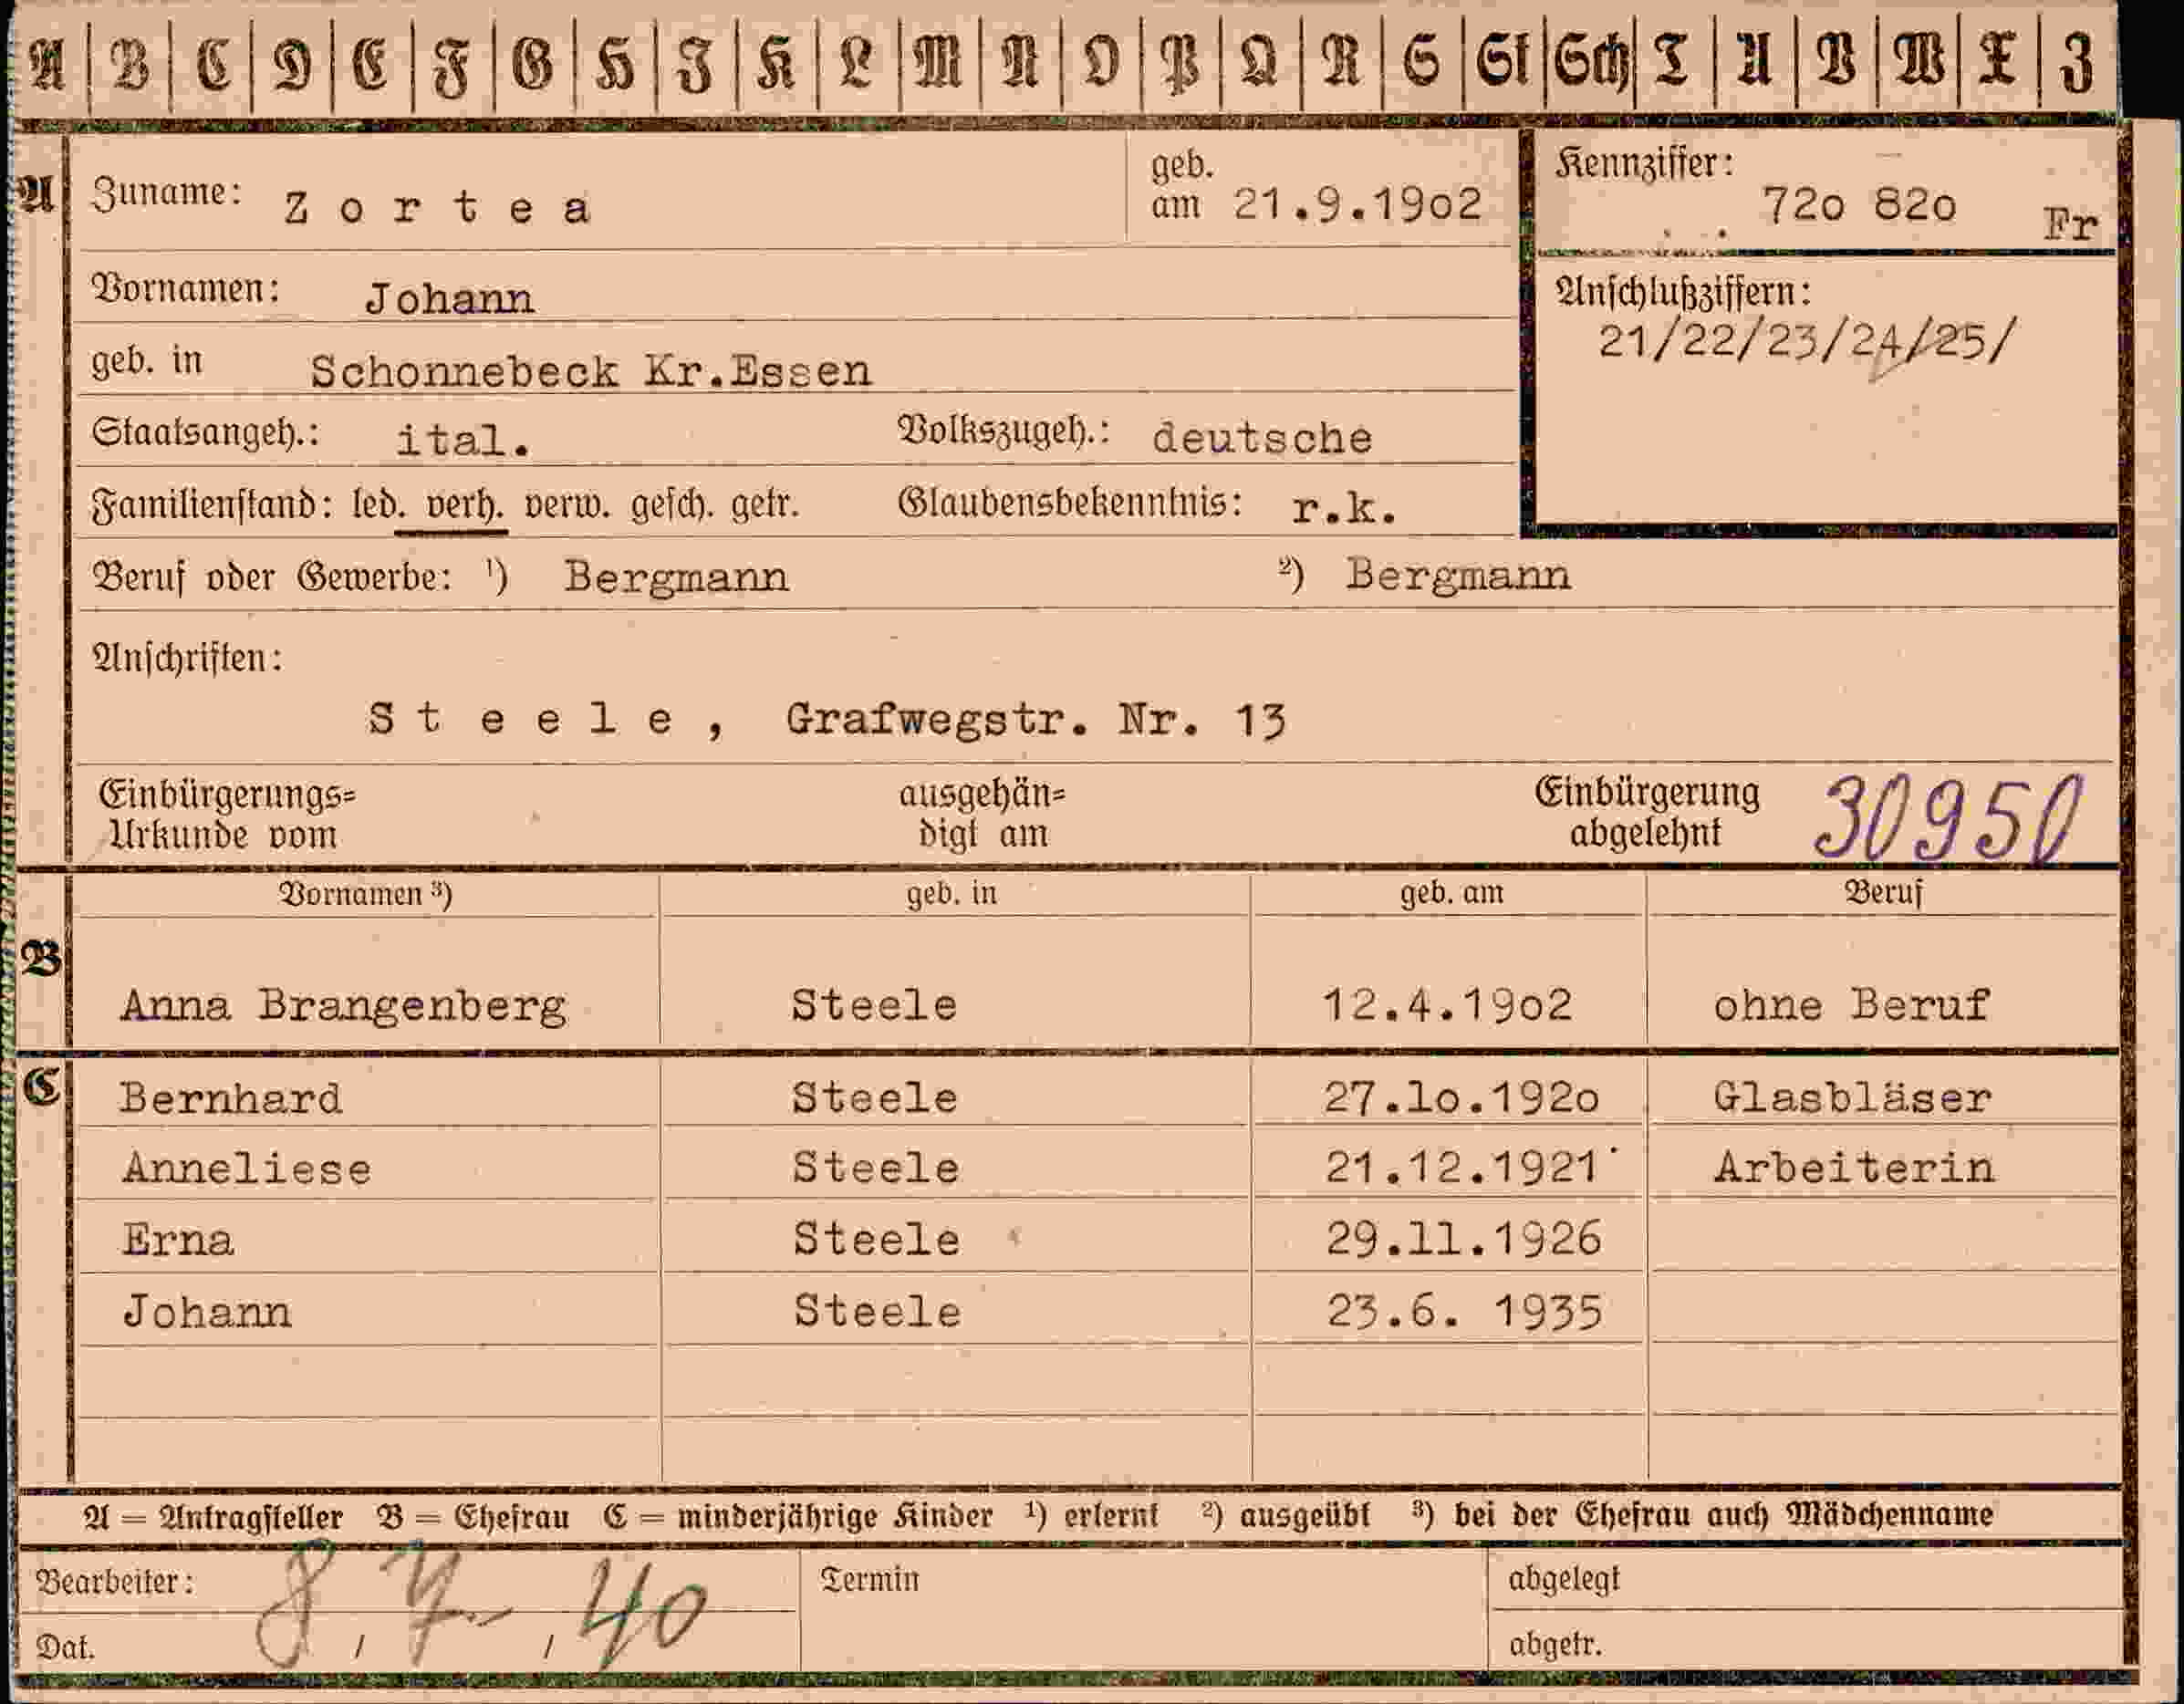 A B C D E F G H I K L M N O P Q R S St Sch T U V W X Z
A Zuname: Zortea geb. am 21.9.19o2 Kennziffer: 72o 82o Fr
Vornamen: Johann Anschlußziffern:
21/22/23/24/25/
geb. in Schonnebeck Kr.Essen
Staatsangeh.: ital. Volkszugeh.: deutsche
Familienstand: led. verh. verw. gesch. getr. Glaubensbekenntnis: r.k.
Beruf oder Gewerbe: ¹) Bergmann ²) Bergmann
Anschriften:
Steele, Grafwegstr. Nr. 13
Einbürgerungs= ausgehän= Einbürgerung 30950
Urkunde vom digt am abgelehnt
Vornamen ³) geb. in geb. am Beruf
B
Anna Brangenberg Steele 12.4.19o2 ohne Beruf
C Bernhard Steele 27.lo.192o Glasbläser
Anneliese Steele 21.12.1921 Arbeiterin
Erna Steele 29.11.1926
Johann Steele 23.6. 1935
A = Antragsteller B = Ehefrau C = minderjährige Kinder ¹) erlernt ²) ausgeübt ³) bei der Ehefrau auch Mädchenname
Bearbeiter: Termin abgelegt
Dat. 8 / 7 / 40 abgetr.